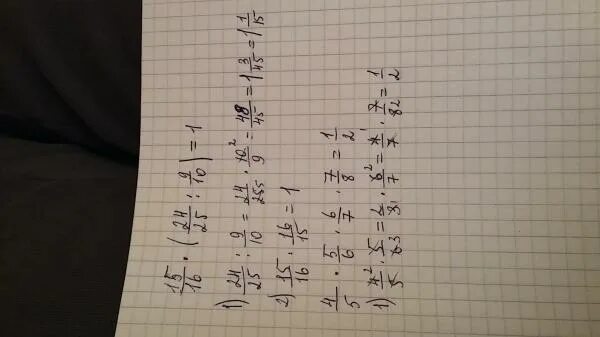 15/16 · (24/25 : 9/10) = 1
1) 24/25 : 9/10 = 24/25 5 · 10 2/9 = 48/45 = 1 3/45 = 1 1/15
2) 15/16 · 16/15 = 1
4/5 · 5/6 · 6/7 · 7/8 = 1/2
1) 4 2/5 · 5/6 3 = 2/3 · 6 2/7 = 4/7 · 7/8 2 = 1/2